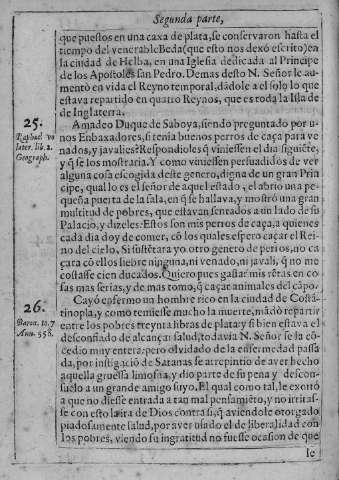 Segunda parte,
que puestos en una caxa de plata, se conservaron hasta el
tiempo del venerable Beda (que esto nos dexó escrito) en
la ciudad de Helba, en una Iglesia dedicada al Principe
de los Apostoles san Pedro. Demas desto N. Señor le au-
mentò en vida el Reyno temporal, dãdole a el solo lo que
estava repartido en quatro Reynos, que es toda la Isla de
de Inglaterra.
25.
Raphael vo
later. lib. 2.
Geograph.
Amadeo Duque de Saboya, siendo preguntado por u-
nos Enbaxadores, si tenia buenos perros de caça para ve
nados, y javalies? Respondioles q̃ viniessen el dia siguiẽte,
y q̃ se los mostraria. Y como viniessen persuadidos de ver
alguna cosa escogida deste genero, digna de un gran Prin
cipe, qual lo es el señor de aquel estado, el abrio una pe-
queña puerta de la sala, en q̃ se hallava, y mostró una gran
multitud de pobres, que estavan sentados a un lado de su
Palacio, y dizeles: Estos son mis perros de caça, a quienes
cada dia doy de comer, cõ los quales espero caçar el Rei-
no del cielo. Si sustẽtára yo otro genero de perros, no ca
çara cõ ellos liebre ninguna, ni venado, ni javali, q̃ no me
costasse cien ducados. Quiero pues gastar mis rẽtas en co-
sas mas serias, y de mas tomo, q̃ caçar animales del cãpo.
26.
Baron. to. 7
Ann. 558.
Cayó enfermo un hombre rico en la ciudad de Costã-
tinopla, y como temiesse mucho la muerte, mãdò repartir
entre los pobres treynta libras de plata: y si bien estava el
desconfiado de alcançar salud, todavia N. Señor se la cõ-
cedio muy entera: pero olvidado de la enfermedad passa
da, por instigaciõ de Satanas se arrepintio de aver hecho
aquella gruessa limosna, y dio parte de su pena y descon-
suelo a un grande amigo suyo, El qual como tal, le exortò
a que no diesse entrada a tan mal pensamiẽto, y no irritas-
se con esto la ira de Dios contra si, q̃ aviendole otorgado
piadosamente salud, por aver usado el de liberalidad con
los pobres, viendo su ingratitud no fuesse ocasion de que
le